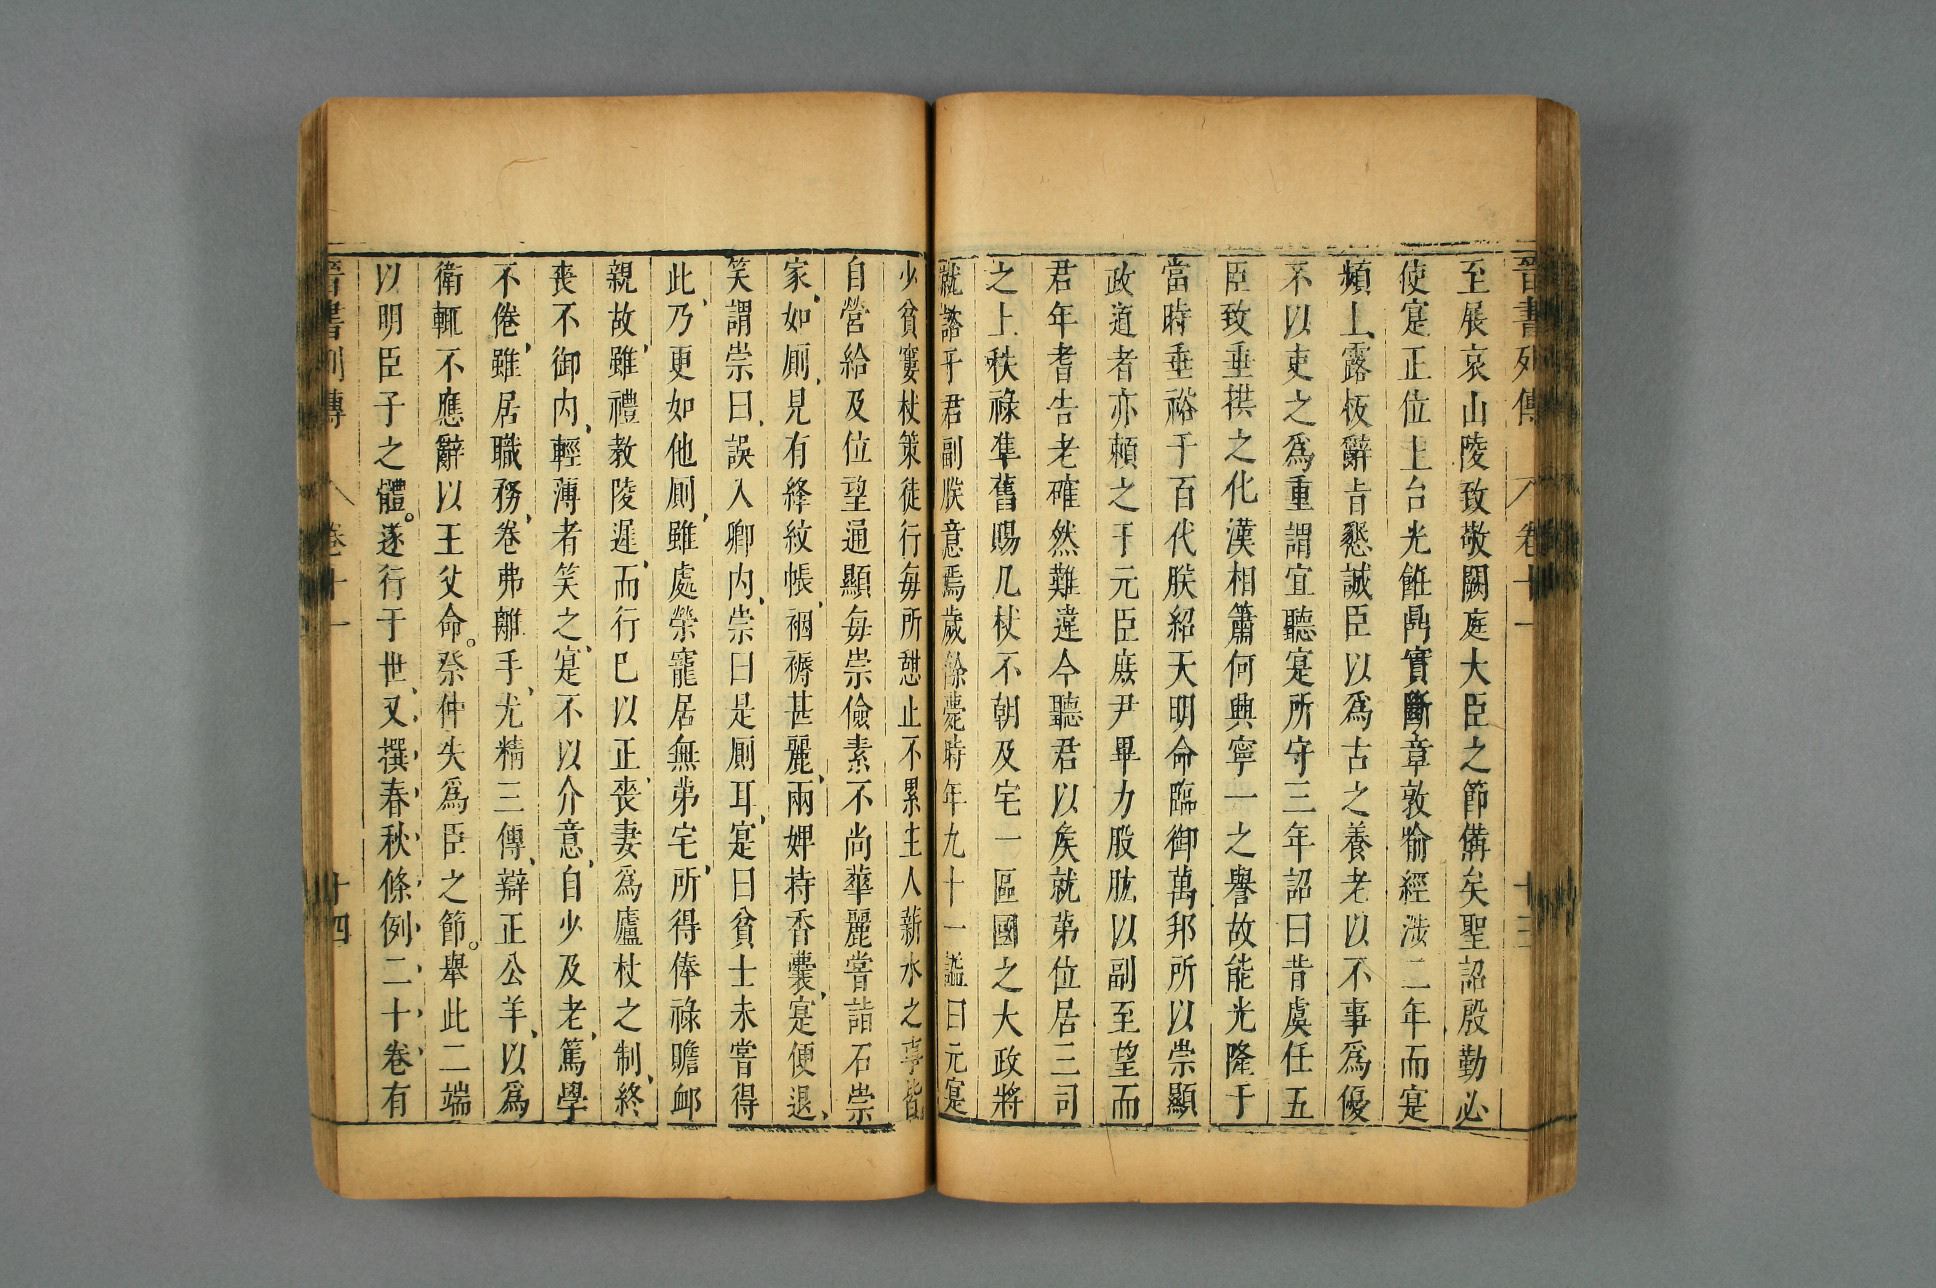 晉書列傳 卷十一 十三
至展哀山陵致敬闕庭大臣之節備矣聖詔殷勤必
使寔正位上台光飪鼎實斷章敦喻經涉二年而寔
頻上露板辭旨懇誠臣以爲古之養老以不事爲優
不以吏之爲重謂宜聽寔所守三年詔曰昔虞任五
臣致垂拱之化漢相簫何興寧一之譽故能光隆于
當時垂裕于百代朕紹天明命臨御萬邦所以崇顯
政道者亦賴之于元臣庶尹畢力股肱以副至望而
君年耆告老確然難違今聽君以侯就第位居三司
之上秩祿準舊賜几杖不朝及宅一區國之大政將
就諮于君副朕意焉歲餘薨時年九十一諡曰元寔
少貧窶杖策徒行每所憩止不累主人薪水之事皆
自營給及位望通顯每崇儉素不尚華麗嘗詣石崇
家如厠見有絳紋帳裀褥甚麗兩婢持香囊寔便退
笑謂崇曰誤入卿内崇曰是厠耳寔曰貧士未嘗得
此乃更如他厠雖處榮寵居無第宅所得俸祿贍卹
親故雖禮教陵遲而行已以正喪妻爲廬杖之制終
喪不御内輕薄者笑之寔不以介意自少及老篤學
不倦雖居職務卷弗離手尤精三傳辯正公羊以爲
衛輒不應辭以王父命。祭仲失爲臣之節。舉此二端
以明臣子之體。遂行于世又撰春秋條例二十卷有
晉書列傳 卷十一 十四